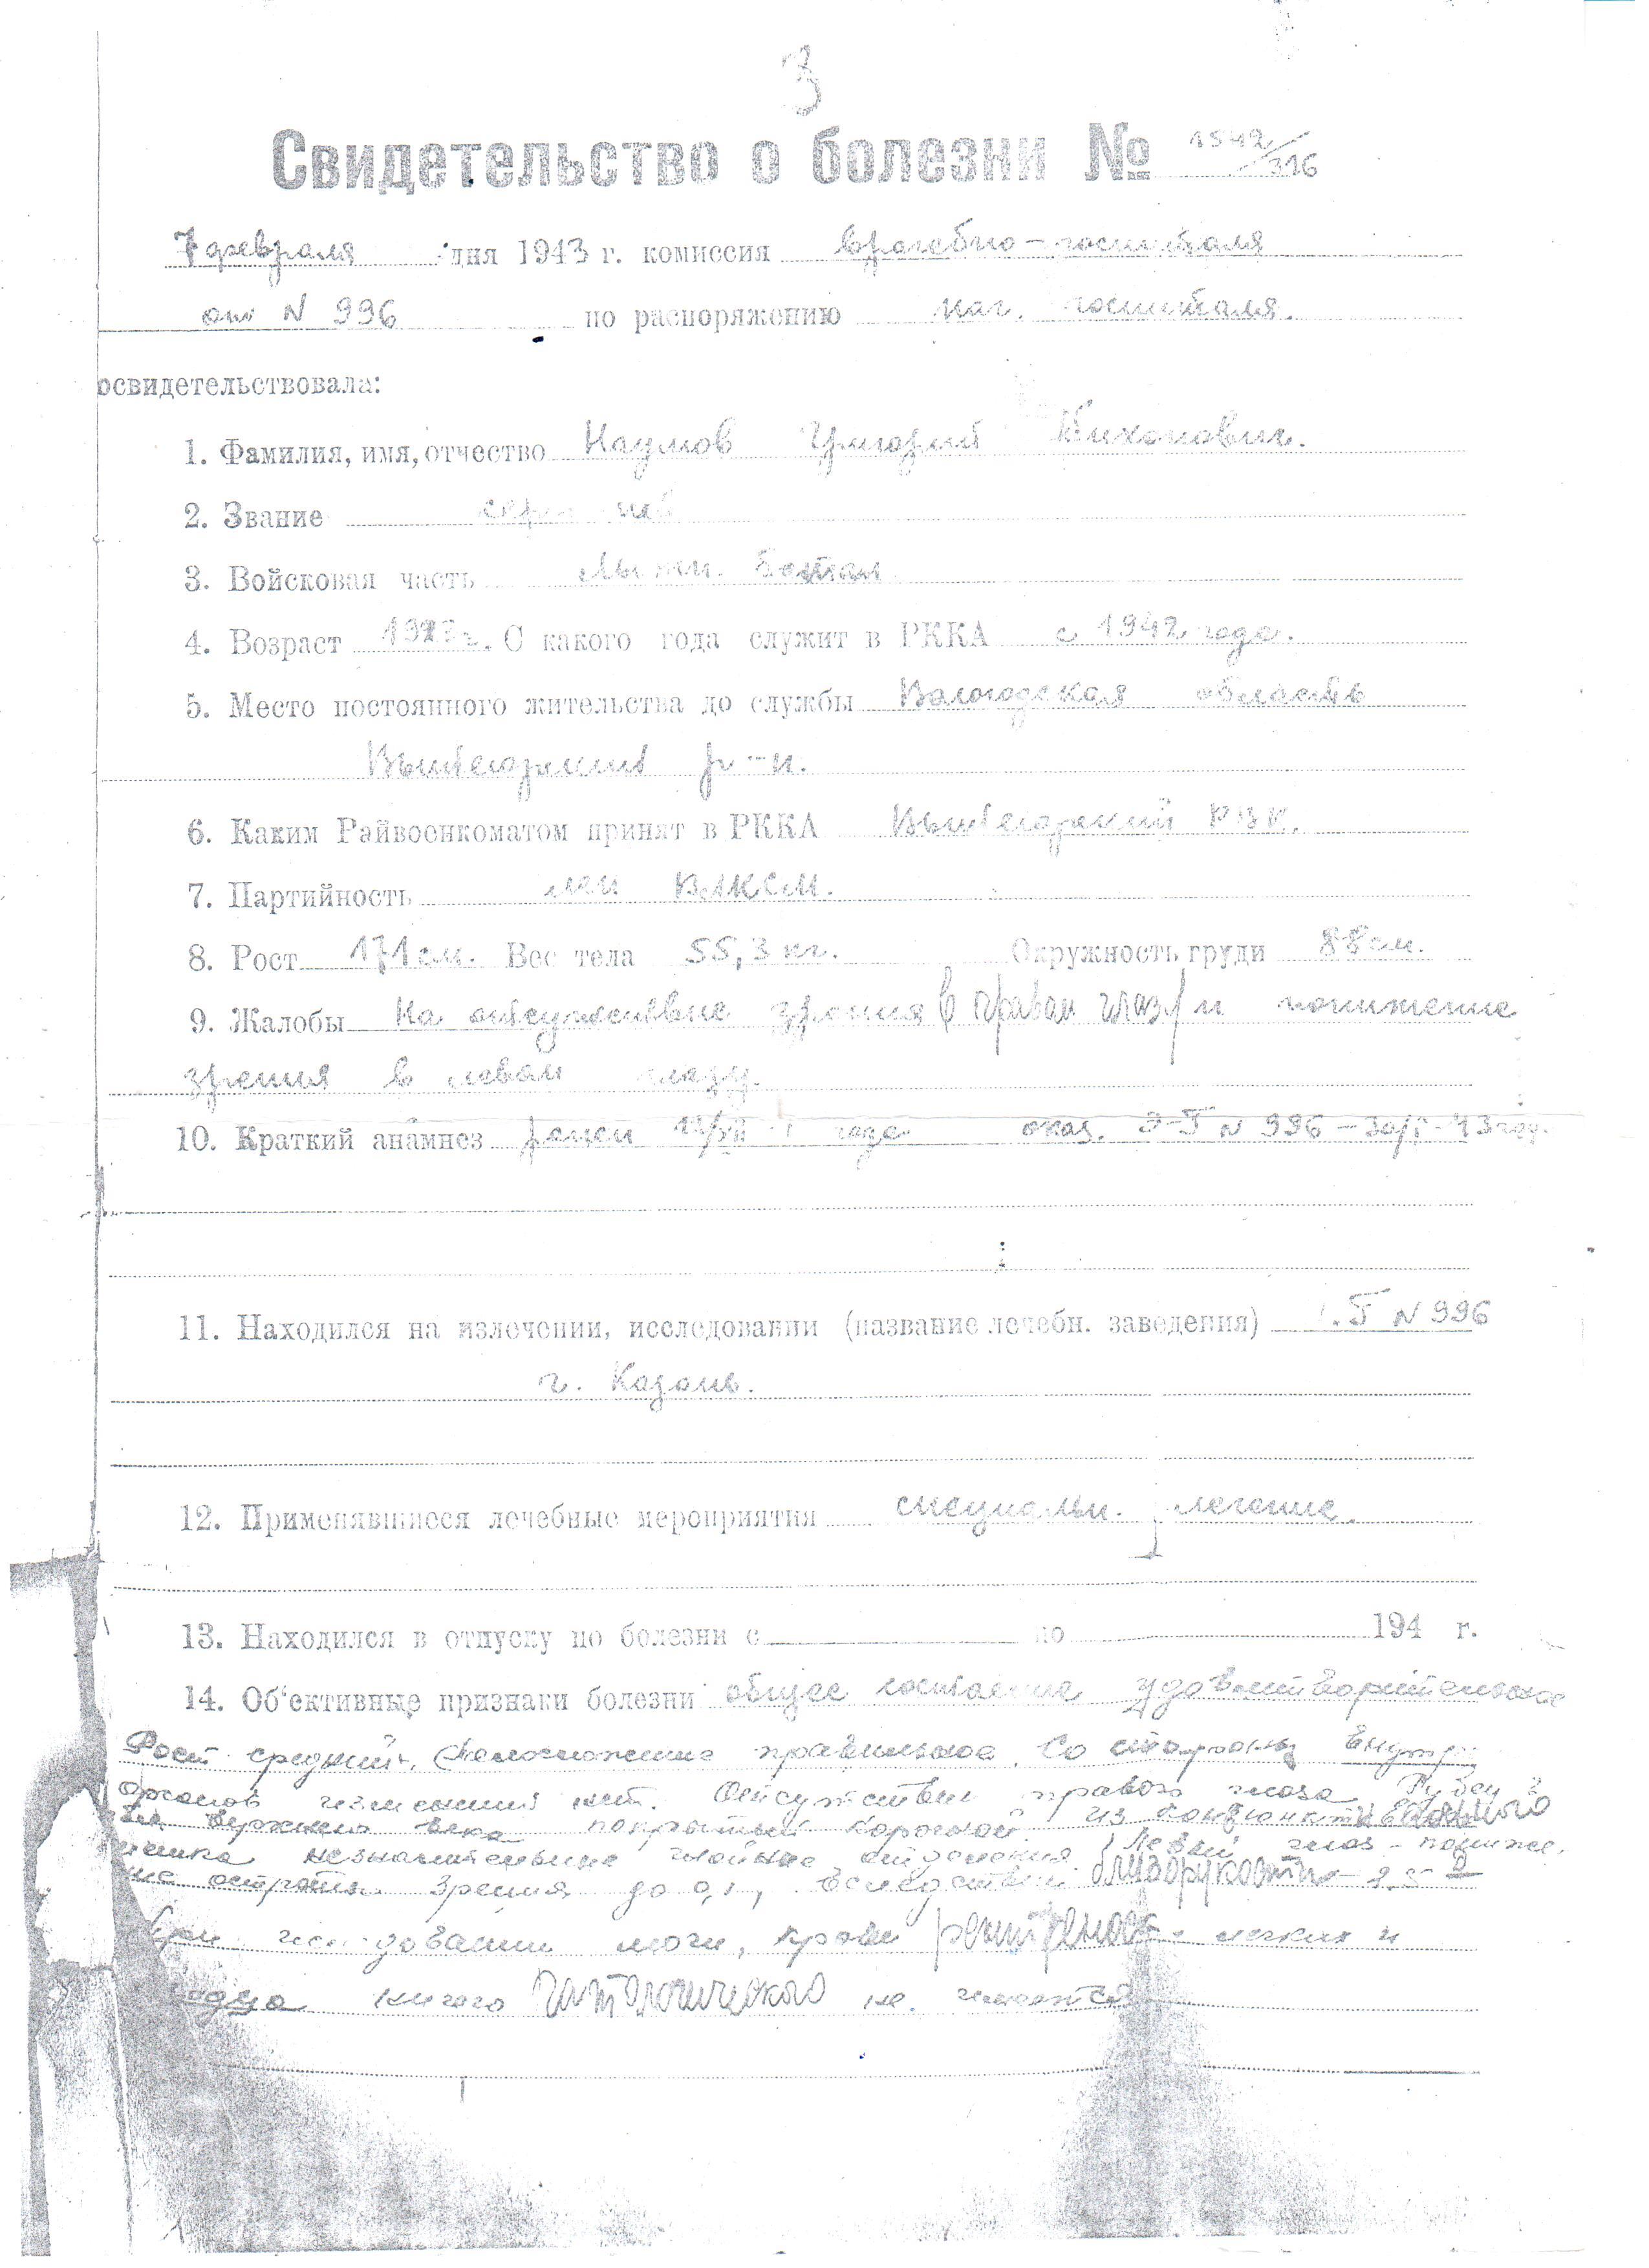 3
Свидетельство о болезни № 1542/316
7 февраля дня 1943 г. комиссия врачебно-госпиталя
от N 996 по распоряжению нач. госпиталя.
освидетельствовала:
1. Фамилия, имя, отчество Наумов Григорий Тихонович.
2. Звание
3. Войсковая часть Лыжн. батал
4. Возраст С какого года служит в РККА с 1942 года.
5. Место постоянного жительства до службы Вологодская область
Вытегорский р-н.
6. Каким Райвоенкоматом принят в РККА Вытегорский РВК.
7. Партийность член ВЛКСМ.
8. Рост 171 см. Вес тела 55,3 кг. Окружность груди 88 см.
9. Жалобы На отсутствие зрения в правом глазу и понижение
зрения в левом глазу.
10. Краткий анамнез ранен года N 996 – 30/I-43 год.
11. Находился на излечении, исследовании (название лечебн. заведения) Г N 996
г. Казань.
12. Применявшиеся лечебные мероприятия специальн. лечение.
13. Находился в отпуску по болезни с по 194 г.
14. Об'ективные признаки болезни общее состояние удовлетворительное
Рост средний. Телосложение правильное. Со стороны внутр
органов изменений нет. Отсутствие правого глаза. Рубец
верхнего века покрытый корочкой. из конъюнктивального
мешка незначительное гнойное отделение. Левый глаз – пониже-
ние остроты зрения до 0,1, вследствии близорукости – 2.5 D
При исследовании мочи, крови рентгеноск. легких и
сердца ничего патологического не имеется